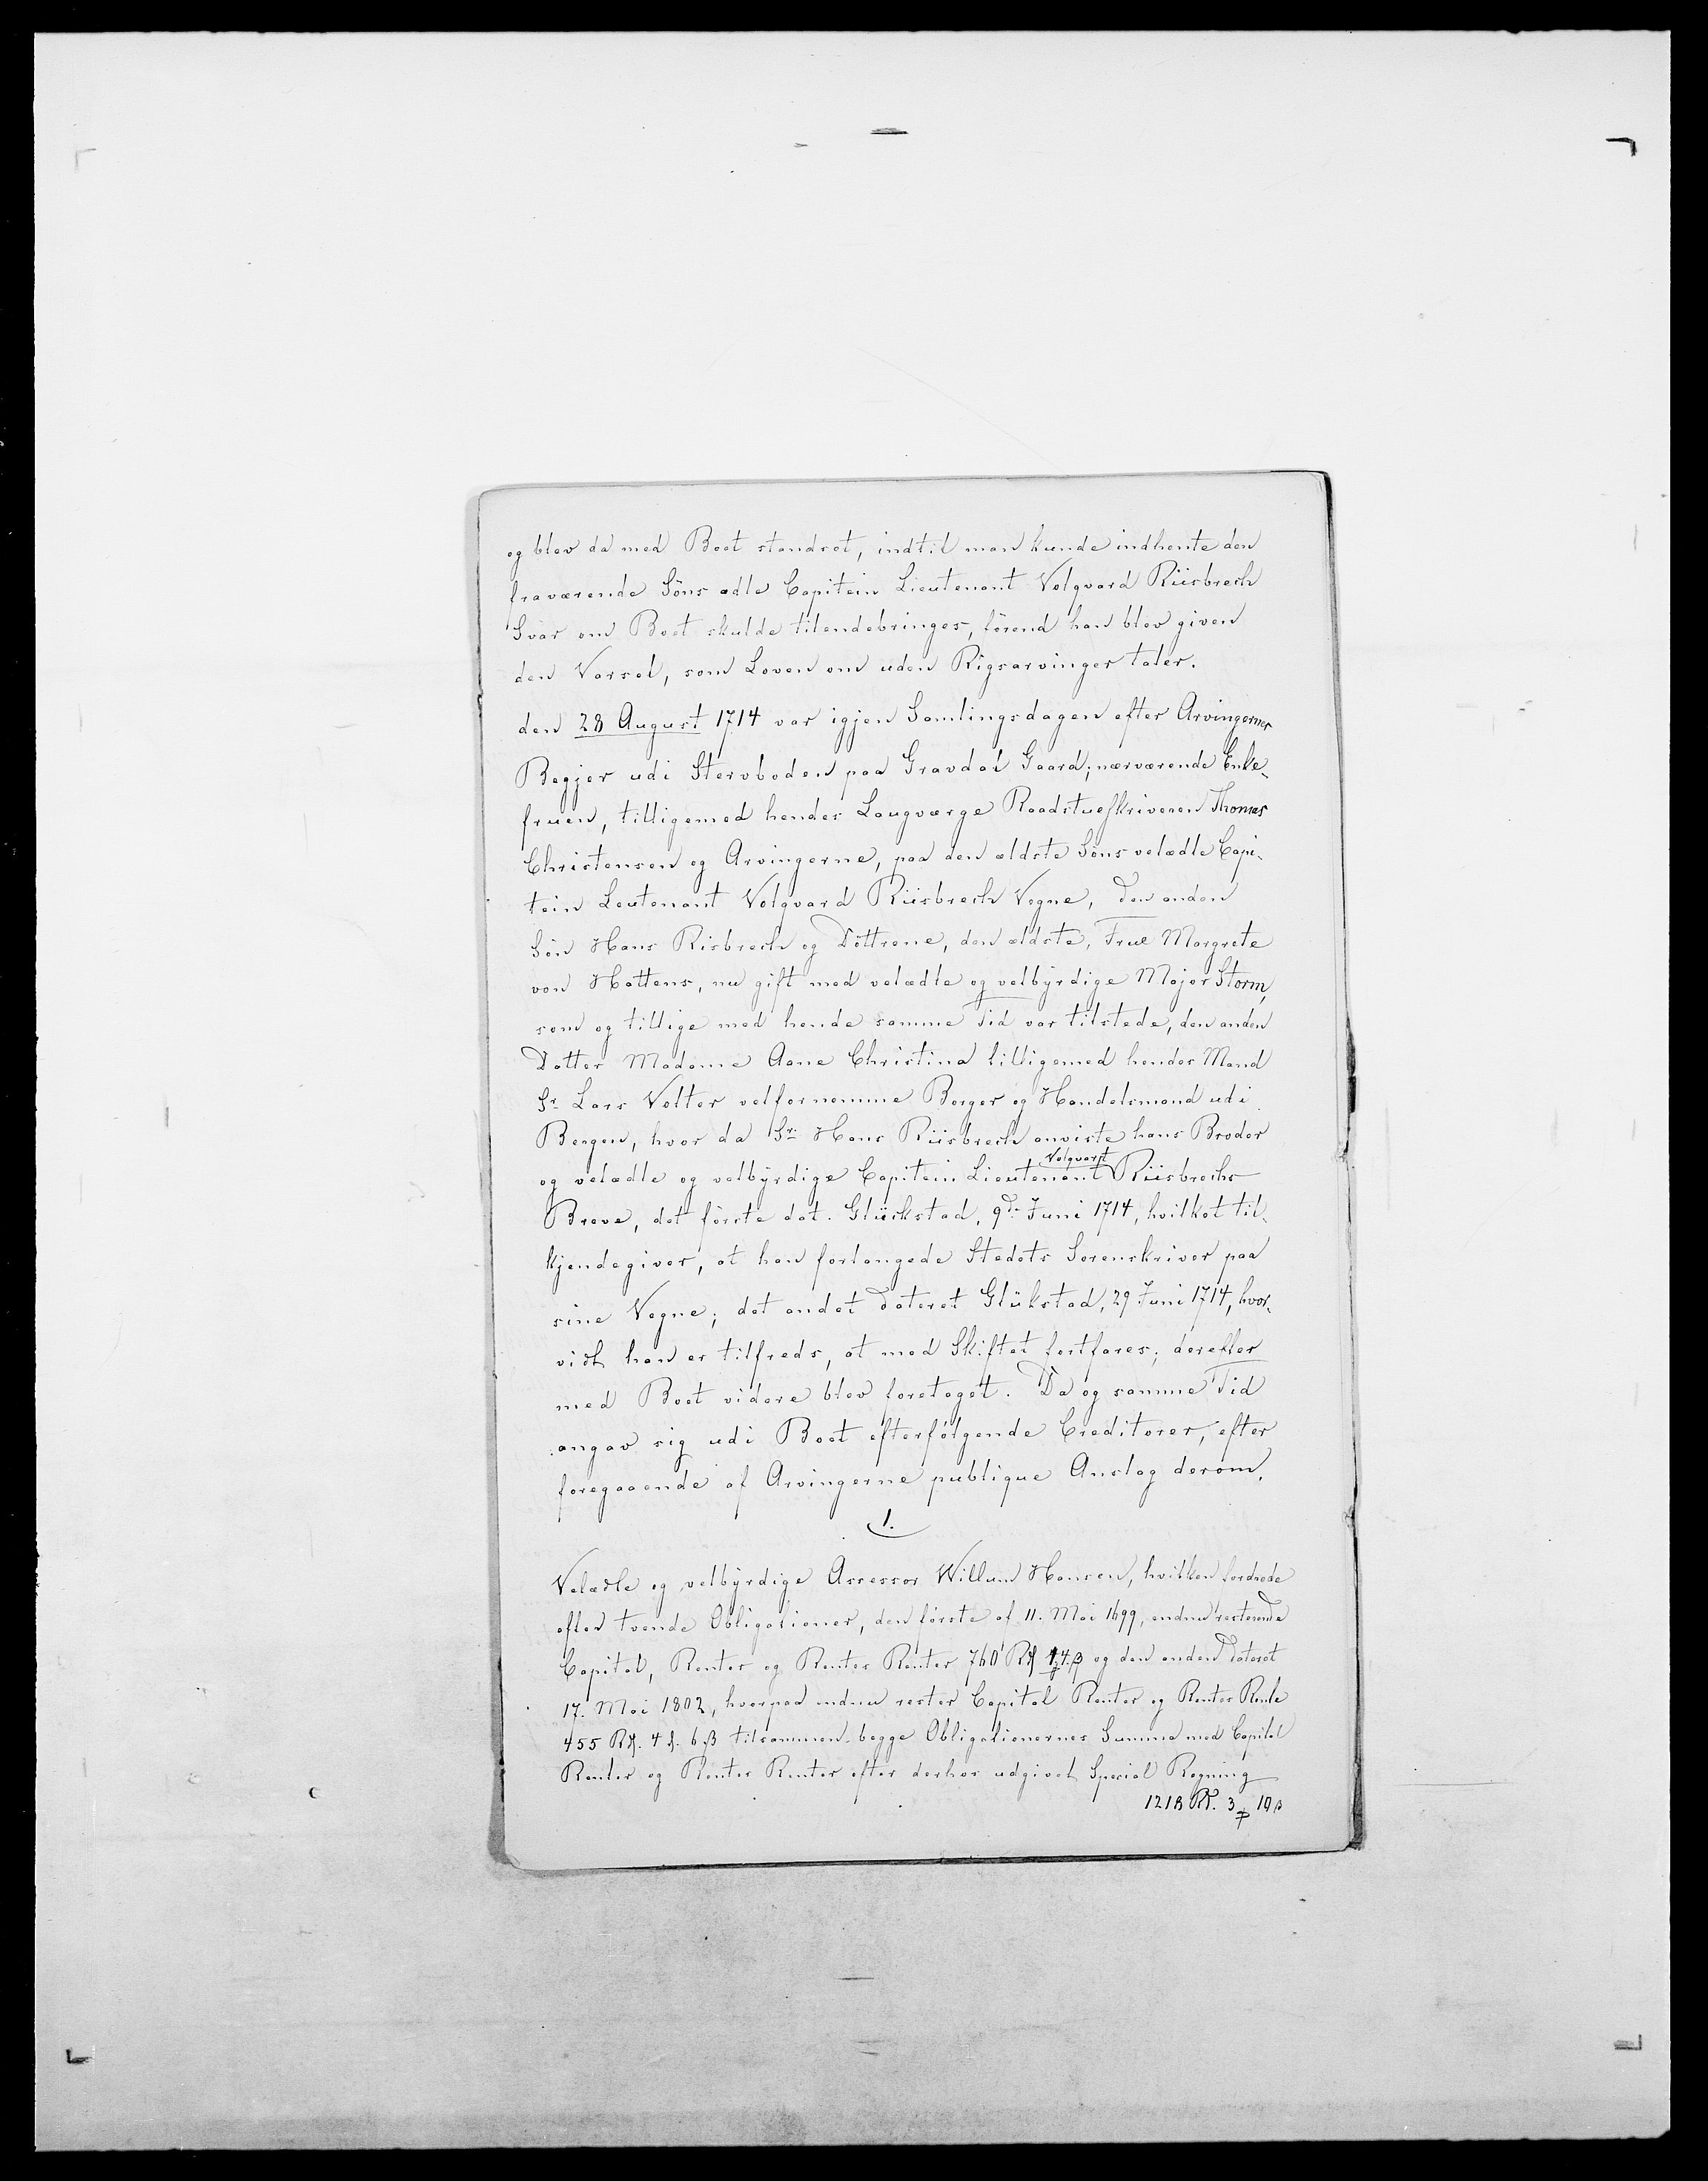 og blev da med Boet standset, indtil man kunde indhente den
fraværende Söns ædle Capitein Lieutenant Volqvard Riisbrech
Svar om Boet skulde tilendebringes, förend han blev given
den Varsel, som Loven om uden Rigsarvinger taler.
den 28 August 1714 var igjen Samlingsdagen efter Arvingernes
Begjer udi Stervboden paa Gravdal Gaard; nærværende Enke-
fruen, tilligemed hendes Laugværge Raadstueskriveren Thomas
Christensen og Arvingerne, paa den ældste Söns velædle Capi-
tein Leutenant Volqvard Riisbrech Vegne, den anden
Sön Hans Risbrech og Döttrene, den ældste, Frue Margrete
von Hattens, nu gift med velædle og velbyrdige Major Storm,
som og tillige med hende samme Tid var tilstede, den anden
Datter Madame Aane Christina tilligemed hendes Mand
Sr. Lars Velter velfornemme Borger og Handelsmand udi
Bergen, hvor da Sr. Hans Riisbrech anviste hans Broder
og velædle og velbyrdige Capitein Lieutenant Volqvart Riisbrechs
Breve, det förste dat. Glückstad, 9de Juni 1714, hvilket til-
kjendegiver, at han forlangede Stedets Sorenskriver paa
sine Vegne; det andet dateret Glükstad, 29 Juni 1714, hvor-
vidt han er tilfreds, at med Skiftet fortfares; derefter
med Boet videre blev foretaget. Da og samme Tid
angav sig udi Boet efterfölgende Creditorer, efter
foregaaende af Arvingerne publique Anslag derom.
1.
Velædle og velbyrdige Assessor Willum Hansen, hvilken fordrede
efter tvende Obligationer, den förste af 11. Mai 1699, endnu resterende
Capital, Renter og Renters Renter 760 Rd 4.ß og den anden dateret
17. Mai 1802, hvorpaa endnu rester Capital Renter og Renters Rente
455 Rd. 4 d. 6 ß tilsammen begge Obligationernes Summa med Capital
Renter og Renters Renter efter derhos udgivet Special Regning
1218 Rd. 3 10 ß